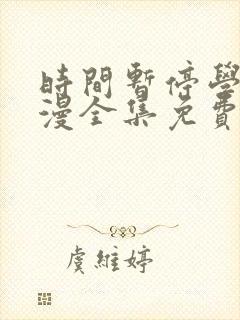 時間暫停學
漫全集免費
虞維婷